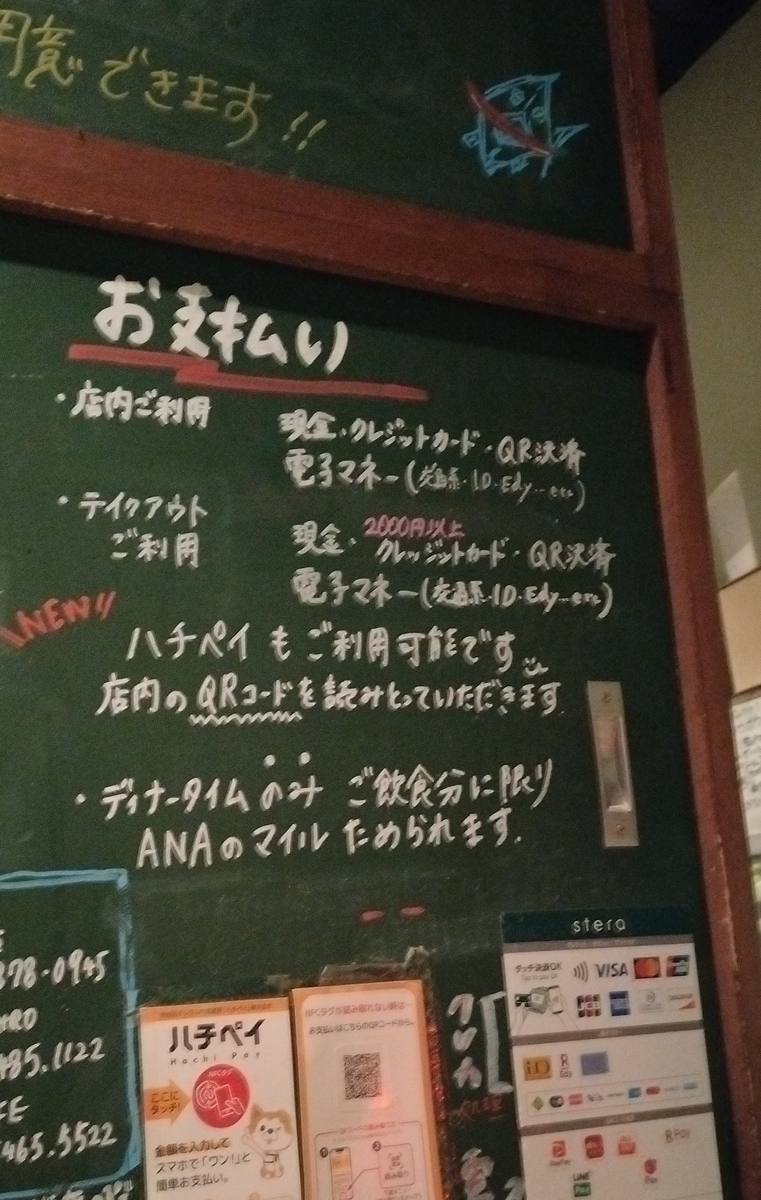 用意できます!!
お支払い
・店内ご利用
現金・クレジットカード・QR決済
電子マネー(交通系・ID・Edy…etc)
・テイクアウト
ご利用
2000円以上
現金・クレジットカード・QR決済
電子マネー(交通系・ID・Edy…etc)
\NEW!!
ハチペイもご利用可能です
店内のQRコードを読みとっていただきます.
・ディナータイムのみ ご飲食分に限り
ANAのマイル ためられます.
878-0945
485.1122
465.5522
ハチペイ
Hachi Pay
NFCタグ
ここに
タッチ!
金額を入力して
スマホで「ワン!」と
簡単お支払い。
NFCタグが読み取れない時は…
お支払いはこちらのQRコードから。
1
2
stera
タッチ決済OK
VISA
JCB
iD
R
Edy
R Pay
PayPay
LINE
Pay